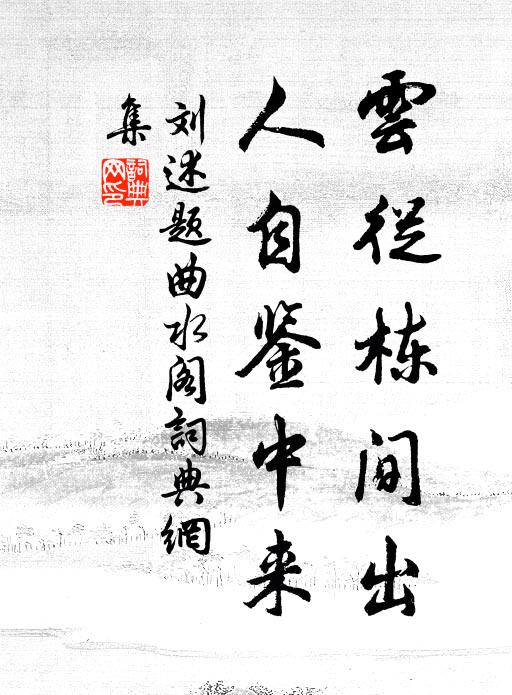 雲從栋间出
人自鉴中来
刘述题曲水阁詞典網
集
詞典
网印